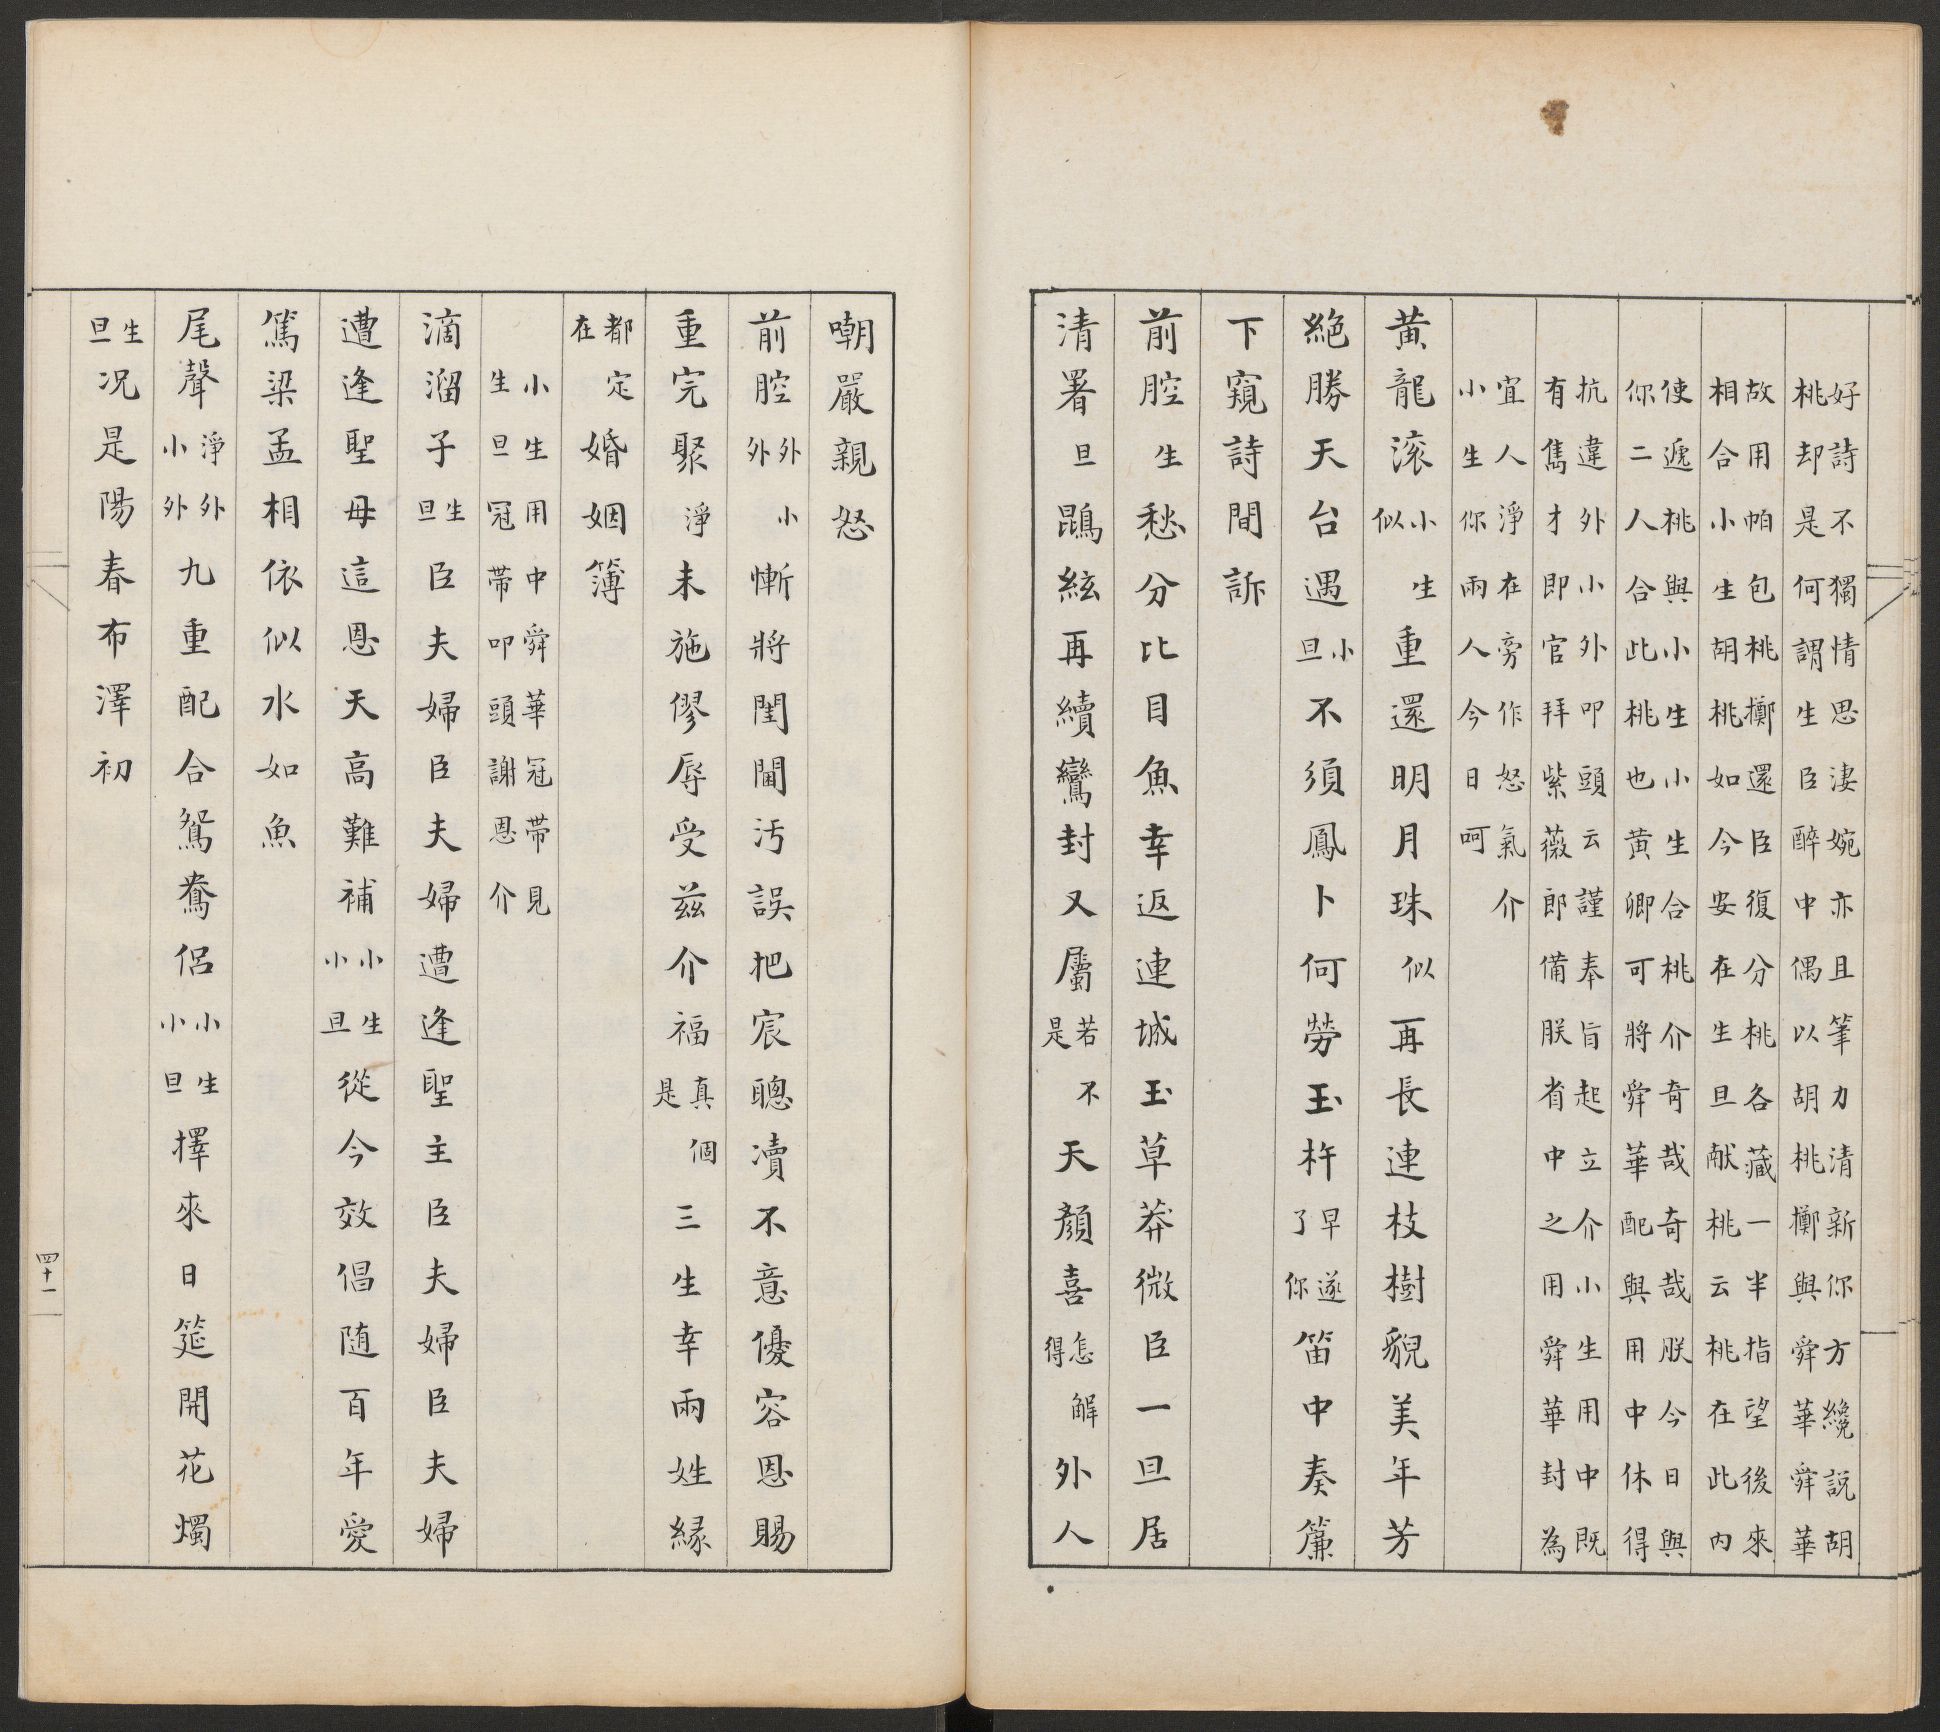 好詩不獨情思淒婉亦且筆力清新你方纔說胡
桃却是何謂生臣醉中偶以胡桃擲與舜華舜華
故用帕包桃擲還臣復分桃各藏一半指望後來
相合小生胡桃如今安在生旦献桃云桃在此內
使遞桃與小生小生合桃介奇哉奇哉朕今日與
你二人合此桃也黄卿可將舜華配與用中休得
抗違外小外叩頭云謹奉旨起立介小生用中既
有雋才即官拜紫薇郎備朕省中之用舜華封為
宜人淨在旁作怒氣介
小生你兩人今日呵
黄龍滚小生似重還明月珠似再長連枝樹貎美年芳
絕勝天台遇小旦不須鳳卜何勞玉杵早了遂你笛中奏簾
下窺詩間訴
前腔生愁分比目魚幸返連城玉草莽微臣一旦居
清署旦鵾絃再續鸞封又屬若是不天顏喜怎得解外人
嘲嚴親怒
前腔外外小慚將閨閫汚誤把宸聰瀆不意優容恩賜
重完聚淨未施僇辱受兹介福真是個三生幸兩姓緣
都在定婚姻簿
小生用中舜華冠帯見
生旦冠帯叩頭謝恩介
滴溜子生旦臣夫婦臣夫婦遭逢聖主臣夫婦臣夫婦
遭逢聖母這恩天高難補小生小旦從今效倡随百年愛
篤梁孟相依似水如魚
尾聲淨外小外九重配合鴛鴦侣小生小旦擇來日筵開花燭
生旦况是陽春布澤初
四十一